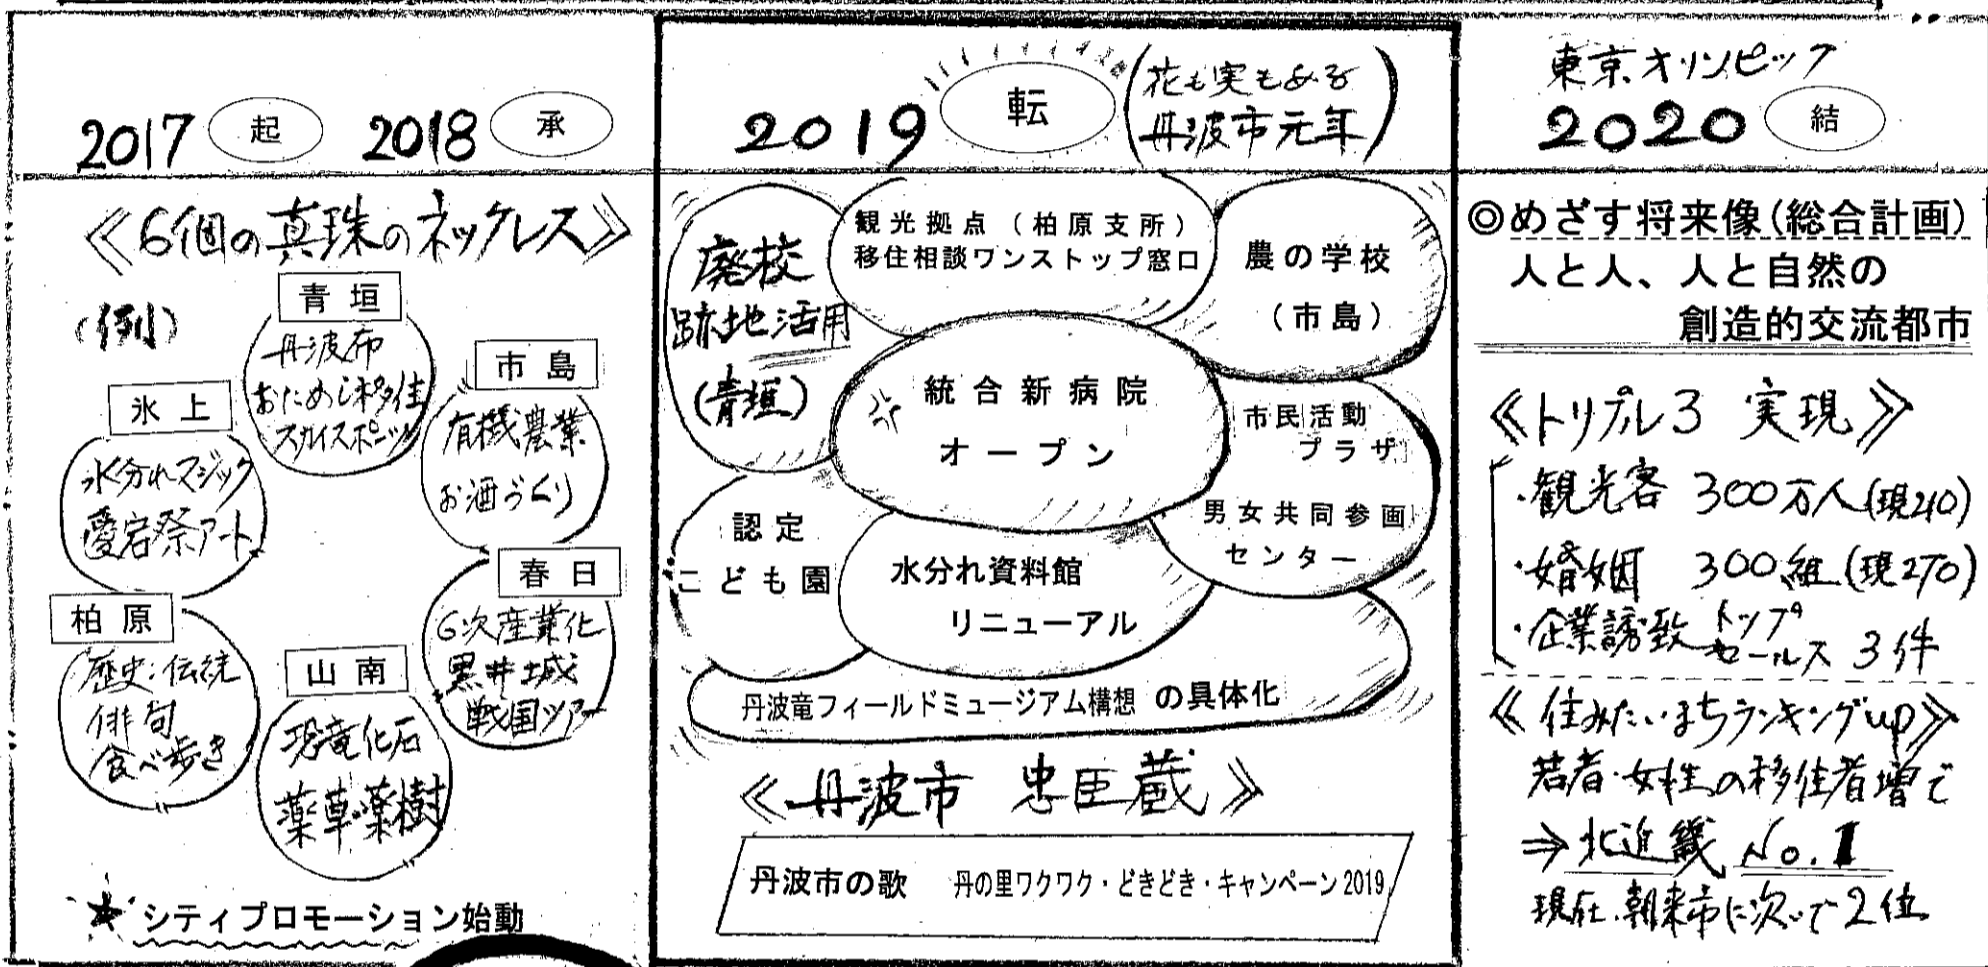 2017 起 2018 承
《6個の真珠のネックレス》
(例)
青垣
丹波布
おためし移住
スカイスポーツ
市島
有機農業
お酒づくり
氷上
水分れマジック
愛宕祭アート
春日
6次産業化
黒井城
戦国ツアー
柏原
歴史・伝統
俳句
食べ歩き
山南
恐竜化石
薬草・薬樹
★シティプロモーション始動
2019 転 (花も実もある
丹波市元年)
廃校
跡地活用
(青垣)
観光拠点(柏原支所)
移住相談ワンストップ窓口
農の学校
(市島)
統合新病院
オープン
市民活動
プラザ
男女共同参画
センター
認定
こども園
水分れ資料館
リニューアル
丹波竜フィールドミュージアム構想 の具体化
《丹波市 忠臣蔵》
丹波市の歌 丹の里ワクワク・どきどき・キャンペーン2019
東京オリンピック
2020 結
◎めざす将来像(総合計画)
人と人、人と自然の
創造的交流都市
《トリプル3 実現》
・観光客 300万人(現210)
・婚姻 300組(現270)
・企業誘致 トップ
セールス 3件
《住みたいまちランキングup》
若者・女性の移住者増で
⇒北近畿 No.1
現在、朝来市に次いで2位